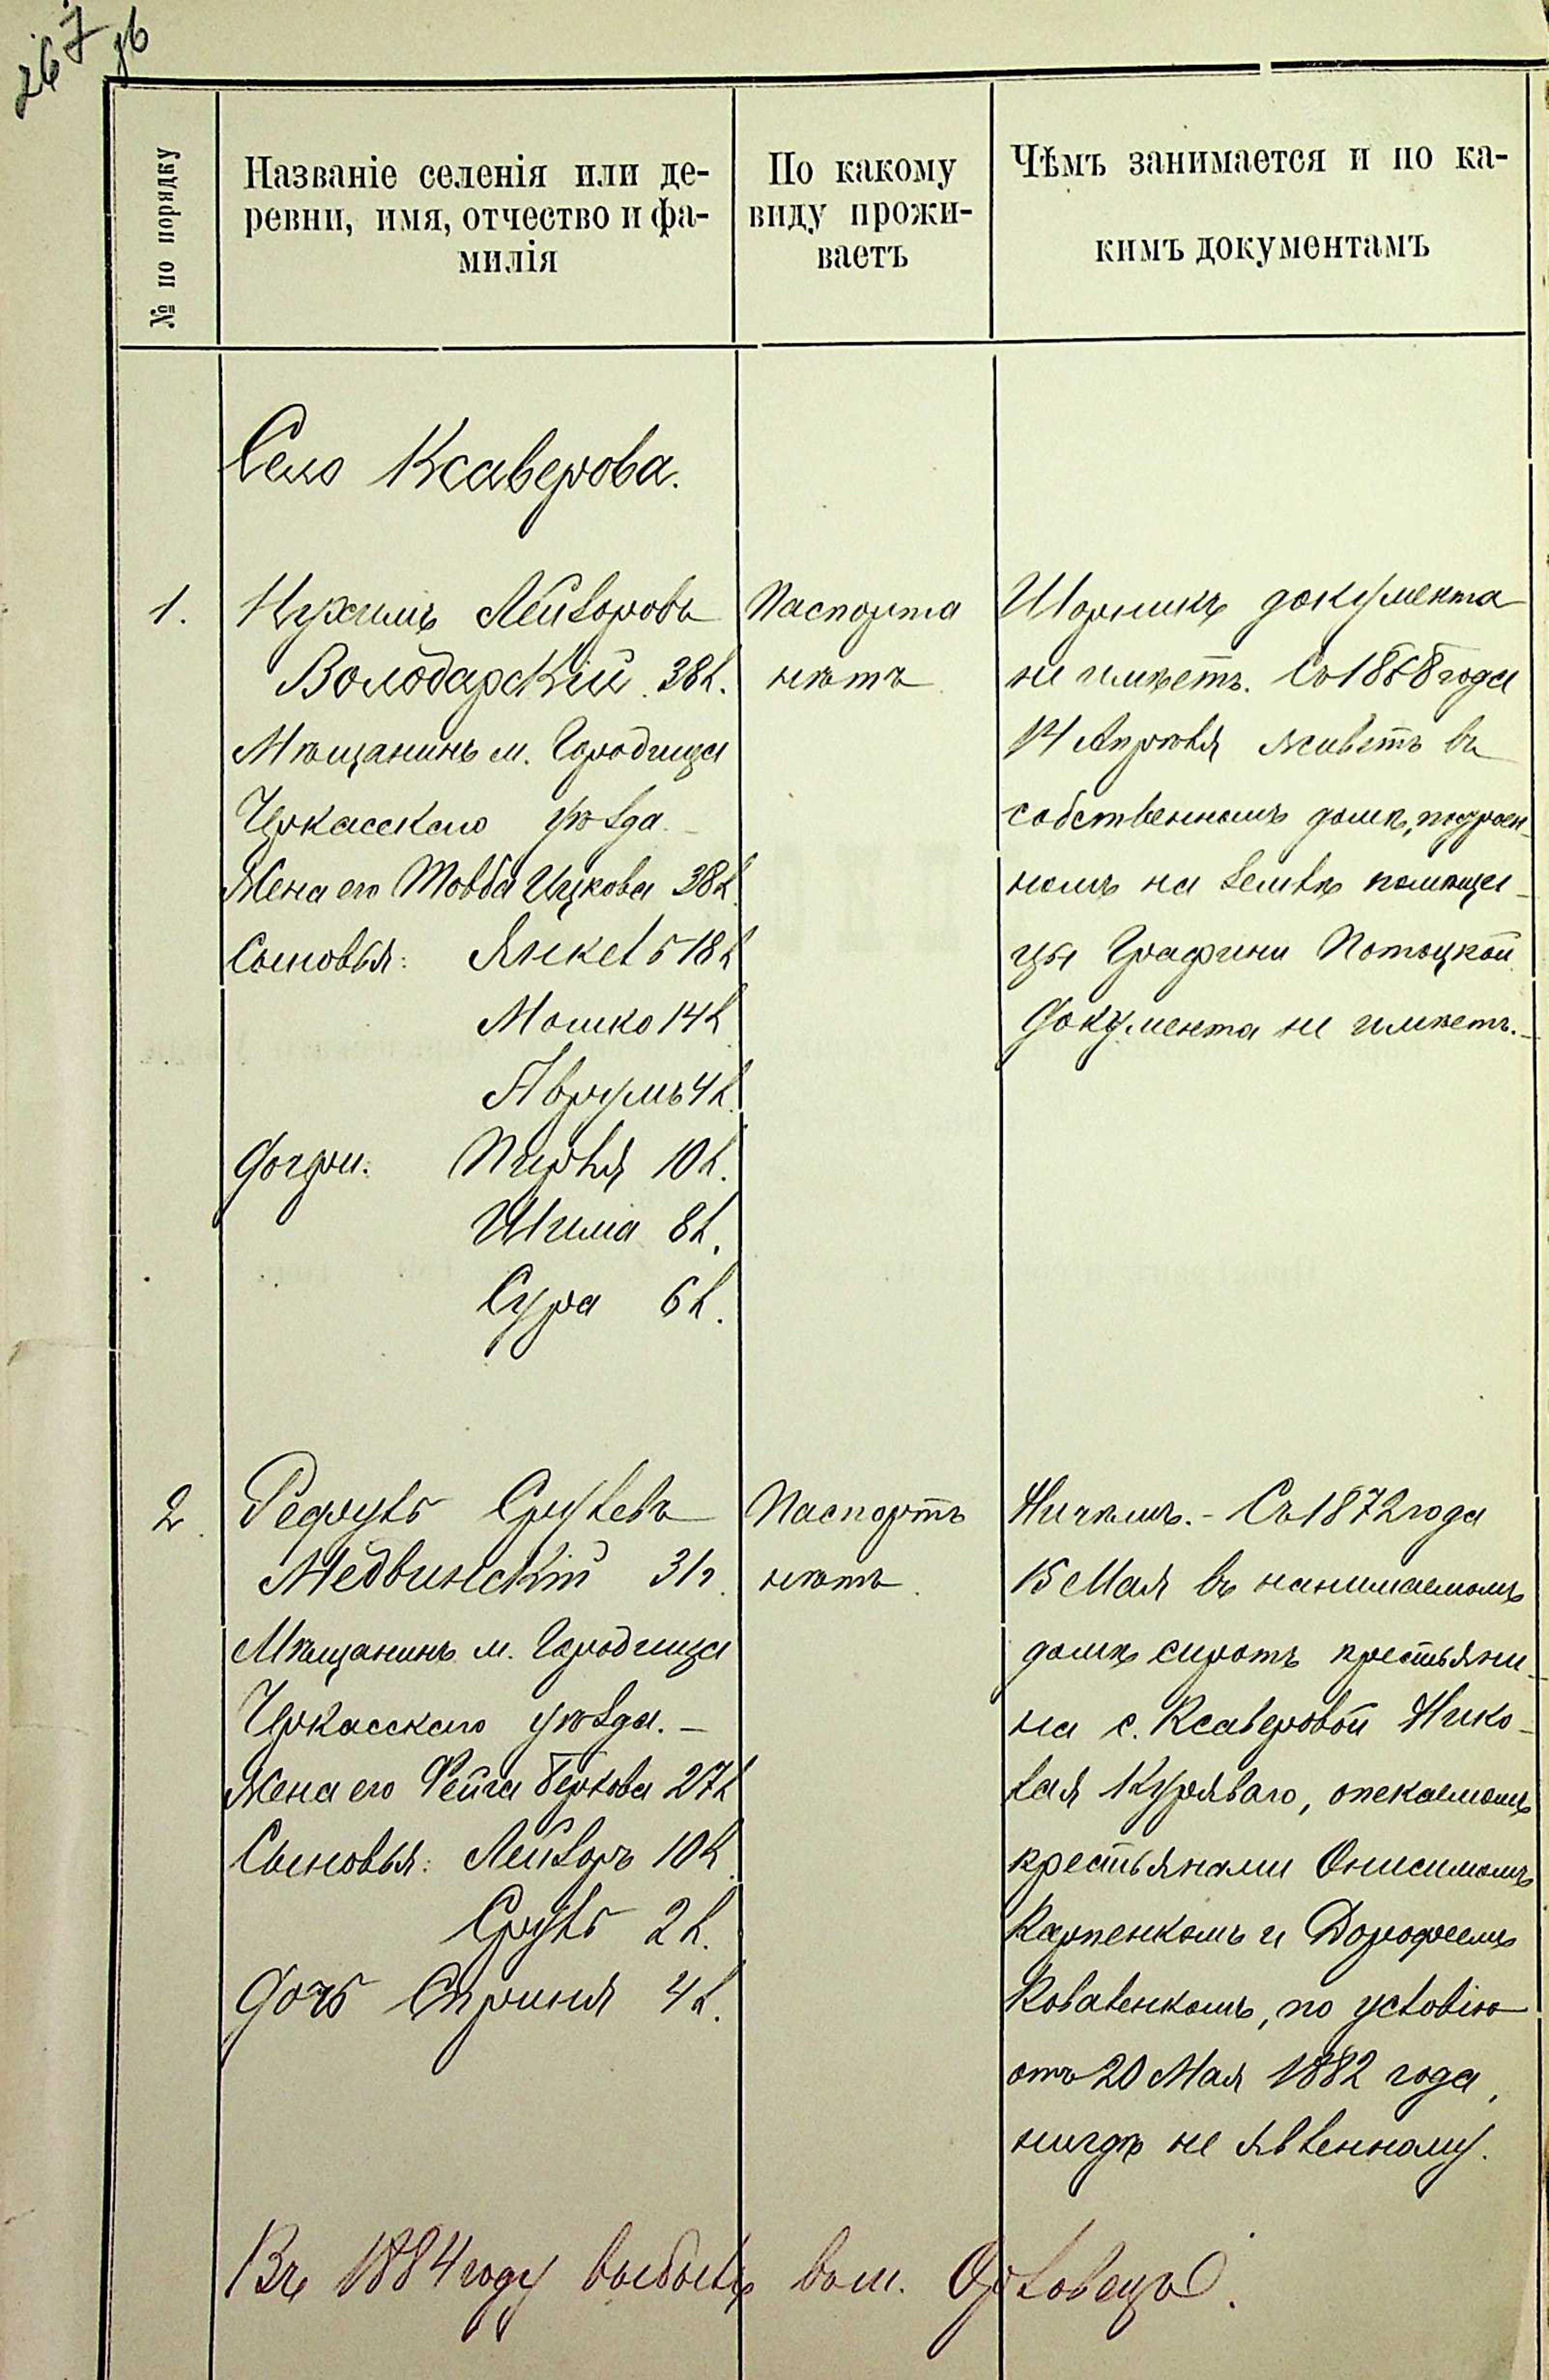 267 об
№ по порядку
Названіе селенія или де-
ревни, имя, отчество и фа-
милія
По какому
виду прожи-
ваетъ
Чѣмъ занимается и по ка-
кимъ документамъ
Село Ксаверова.
1.
Нухимъ Лейзоровъ
Володарскій 38 л.
Мѣщанинъ м. Городища
Черкасскаго уѣзда.
Жена его Товба Ицкова 38 л.
Сыновья: Янкель 18 л
Мошко 14 л
Аврумъ 4 л.
Дочери: Пирля 10 л.
Шима 8 л.
Сура 6 л.
Паспорта
нѣтъ
Шорникъ документа
не имѣетъ. Съ 1868 года
14 Апрѣля живетъ въ
собственномъ домѣ, построен-
номъ на землѣ помѣщи-
цы Графини Потоцкой
Документа не имѣетъ.-
2.
Рефуль Срулевъ
Медвинскій 31 г.
Мѣщанинъ м. Городища
Черкасскаго уѣзда. -
Жена его Фейга Беркова 27 л
Сыновья: Лейзоръ 10 л.
Сруль 2 л.
Дочь Сприня 4 л.
Паспортъ
нѣтъ.
Ничѣмъ. - Съ 1872 года
15 Мая въ нанимаемомъ
домѣ сиротъ крестьяни-
на с. Ксаверовой Нико-
лая Куряваго, опекаемомъ
крестьянами Онисимомъ
Карпенкомъ и Дорофеемъ
Коваленкомъ, по условію
отъ 20 Мая 1882 года,
нигдѣ не явленному.
Въ 1884 году выбылъ въ м. Орловецъ.